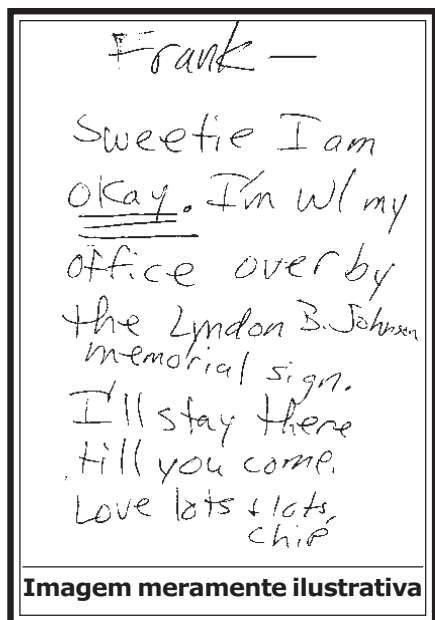 Frank —
Sweetie I am
okay. I'm w/ my
office over by
the Lyndon B. Johnson
memorial sign.
I'll stay there
till you come.
Love lots & lots,
Imagem meramente ilustrativa